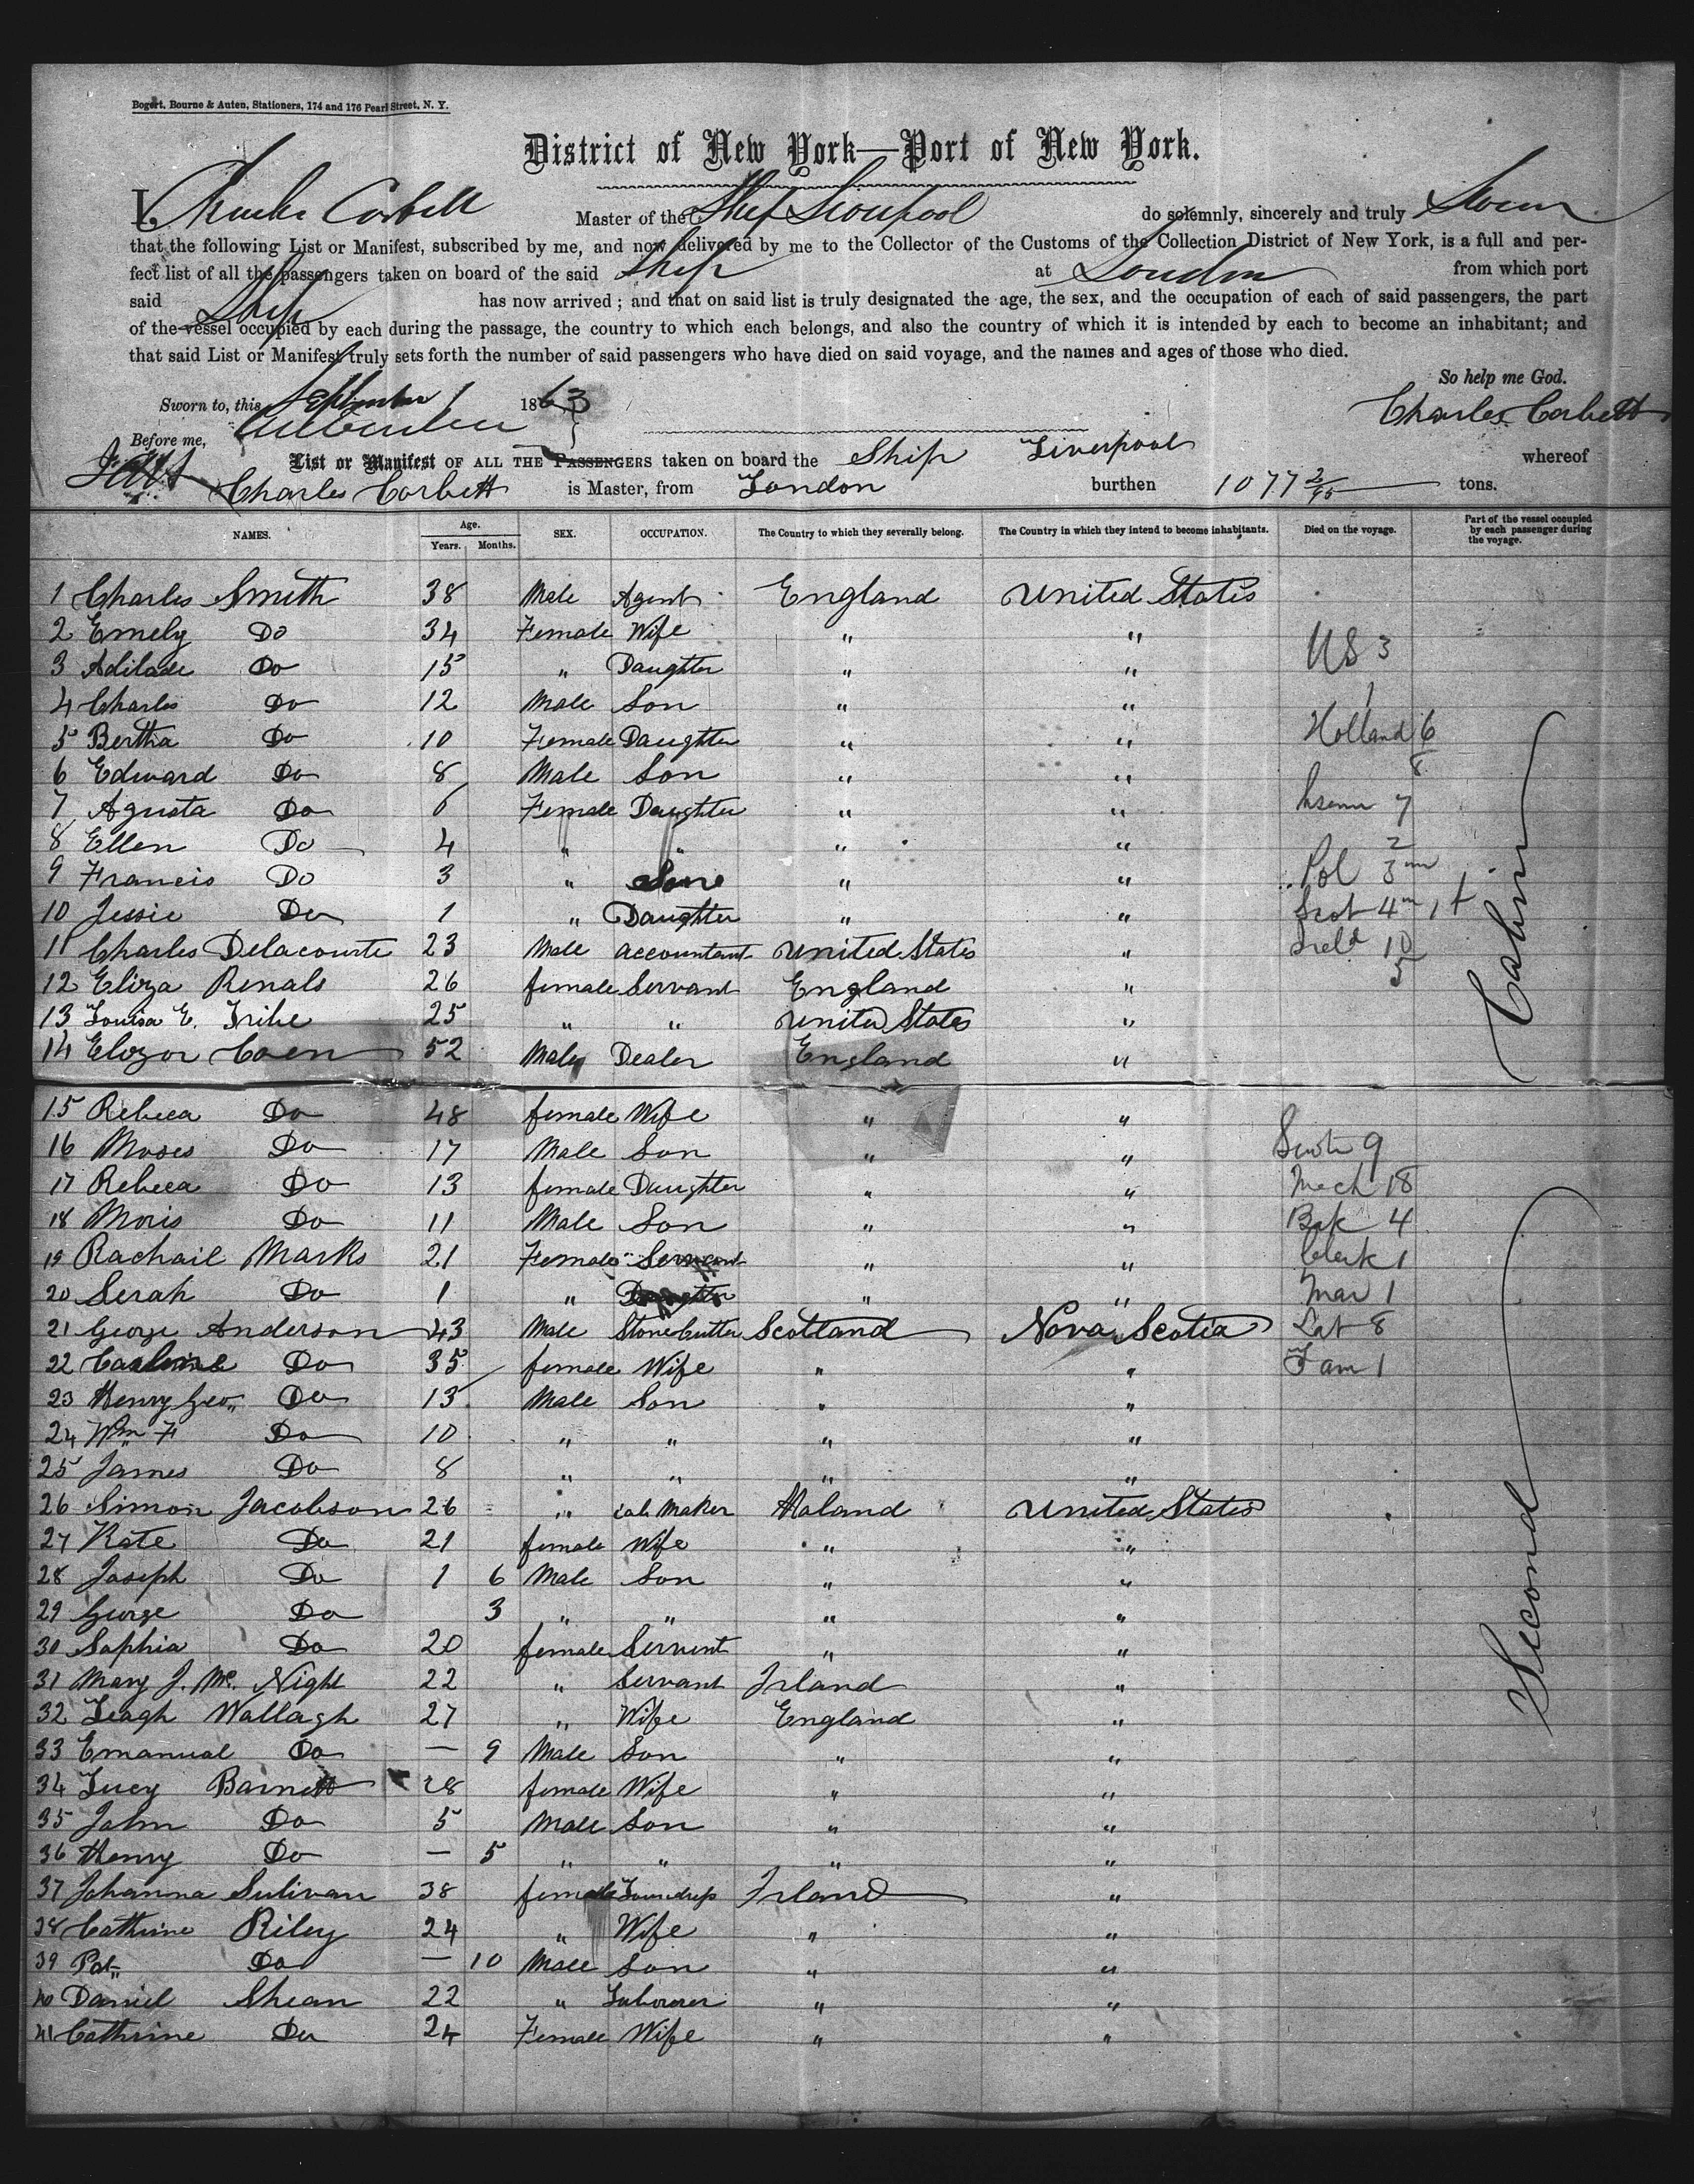 Bogert, Bourne & Auten, Stationers, 174 and 176 Pearl Street, N. Y.
District of New York—Port of New York.
I, Charles Corbett Master of the Ship Liverpool do solemnly, sincerely and truly Swear
that the following List or Manifest, subscribed by me, and now delivered by me to the Collector of the Customs of the Collection District of New York, is a full and per-
fect list of all the passengers taken on board of the said Ship at London from which port
said Ship has now arrived ; and that on said list is truly designated the age, the sex, and the occupation of each of said passengers, the part
of the vessel occupied by each during the passage, the country to which each belongs, and also the country of which it is intended by each to become an inhabitant; and
that said List or Manifest truly sets forth the number of said passengers who have died on said voyage, and the names and ages of those who died.
So help me God.
Sworn to, this September 1 1863
Charles Corbett
Before me,
List or Manifest OF ALL THE PASSENGERS taken on board the Ship Liverpool whereof
Charles Corbett is Master, from London burthen 1077 2/95 tons.
NAMES. Age. Years. Months. SEX. OCCUPATION. The Country to which they severally belong. The Country in which they intend to become inhabitants. Died on the voyage. Part of the vessel occupied by each passenger during the voyage.
1 Charles Smith 38 Male Agent England United States
2 Emely Do 34 Female Wife " "
3 Adilade Do 15 " Daughter " " US 3
4 Charles Do 12 Male Son " " 1
5 Bertha Do 10 Female Daughter " " Holland 6
6 Edward Do 8 Male Son " " 8
7 Agusta Do 6 Female Daughter " " 7
8 Ellen Do 4 " " " " 2
9 Francis Do 3 " Sone " " Pol 3
10 Jessie Do 1 " Daughter " " Scot 4
11 Charles Delacourte 23 Male accountant United States " Ireld 10
12 Eliza Renals 26 female Servant England " 5
13 Louisa E. Tribe 25 " " United States "
14 Elozor Coen 52 Male Dealer England "
Cabin
15 Rebeca Do 48 female Wife " "
16 Moses Do 17 Male Son " " 9
17 Rebeca Do 13 female Daughter " " Mech 18
18 Moris Do 11 Male Son " " Bak 4
19 Rachail Marks 21 Female Servant " " Clerk 1
20 Serah Do 1 " Daughter " " Mar 1
21 George Anderson 43 Male Stone Cutter Scotland Nova Scotia Lab 8
22 Do 35 female Wife " " Farm 1
23 Henry Geo" Do 13 Male Son " "
24 Wm F Do 10 " " " "
25 James Do 8 " " " "
26 Simon Jacobson 26 " Maker Holand United States
27 Kate Do 21 female Wife " "
28 Joseph Do 1 6 Male Son " "
29 George Do 3 " " " "
30 Sophia Do 20 female Servent " "
31 Mary J. Mc. Night 22 " Servant Irland "
32 Leagh Wallagh 27 " Wife England "
33 Emanual Do — 9 Male Son " "
34 Lucy Barnett 28 female Wife " "
35 John Do 5 Male Son " "
36 Henry Do — 5 " " " "
37 Johanna Sulivan 38 female Laundress Irland "
38 Cathrine Riley 24 " Wife " "
39 Pat" Do — 10 Male Son " "
40 Daniel Shean 22 " Laborer " "
41 Cathrine Do 24 Female Wife " "
Second